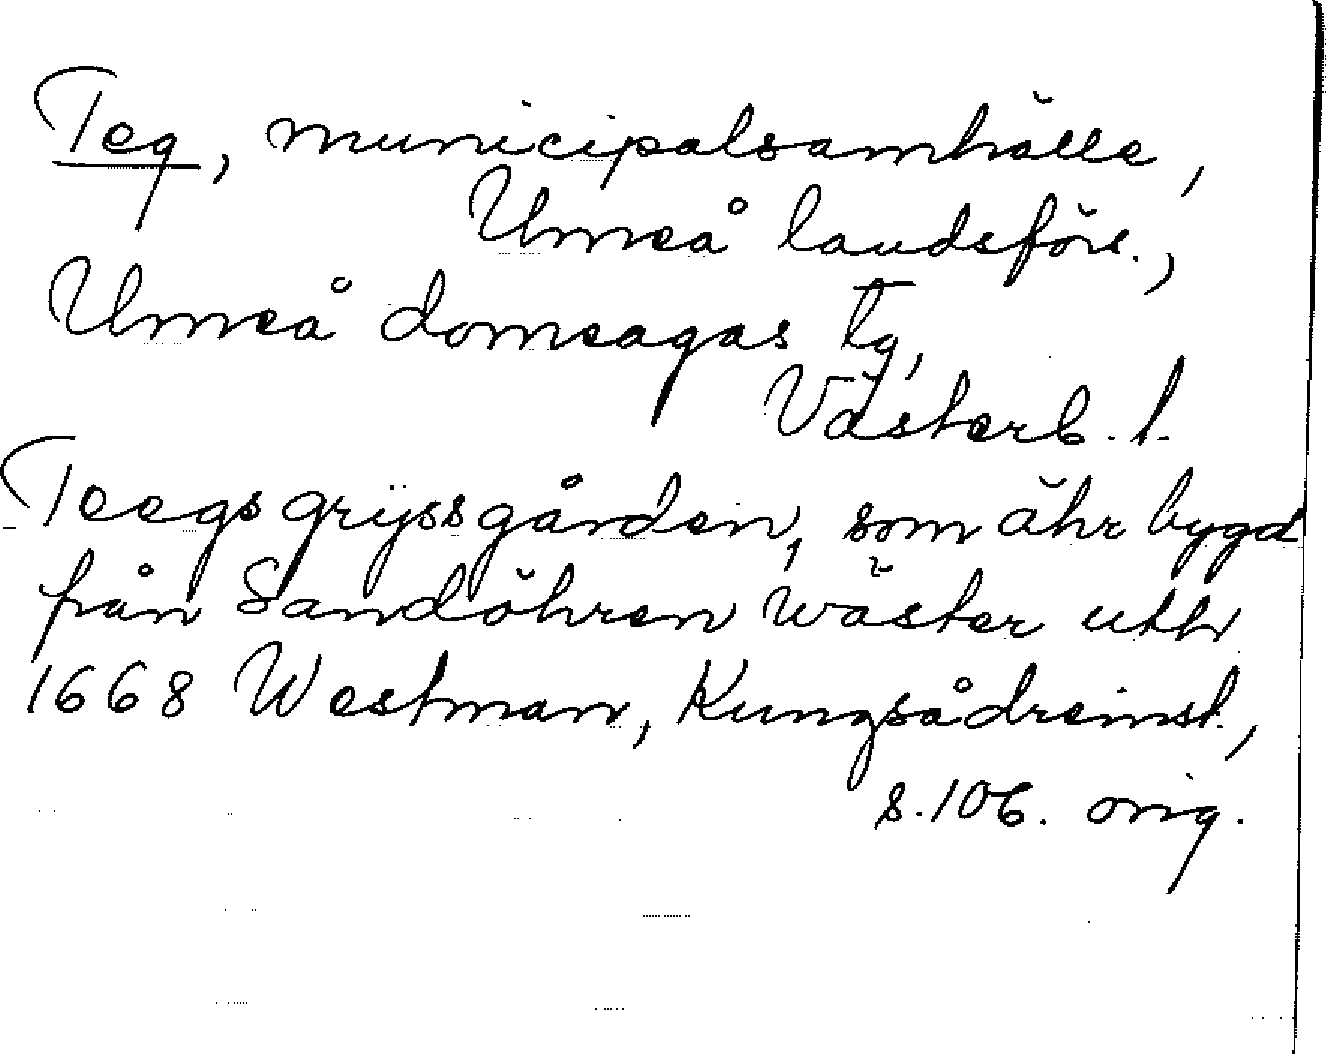 Teg, municipalsamhälle,
Umeå landsförs.,
Umeå domsagas tg,
Västerb. l.
Teegsgrÿssgården, som ähr bygd
från Sandöhren wäster utthr
1668 Westman, Kungsådreinst.,
s. 106. orig.